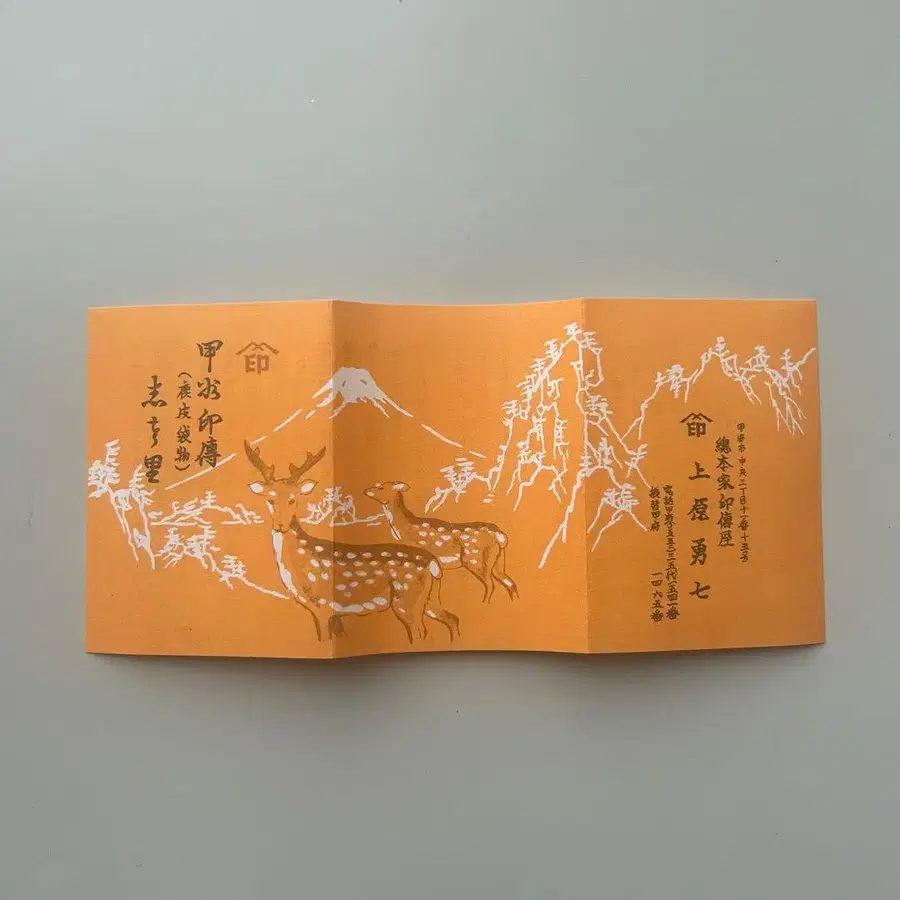 甲府市中央三丁目十一番十五号
總本家印傳屋
印 上原勇七
電話甲府
振替甲府 一四六五番
印
甲州印傳
(鹿皮袋物)
志を里